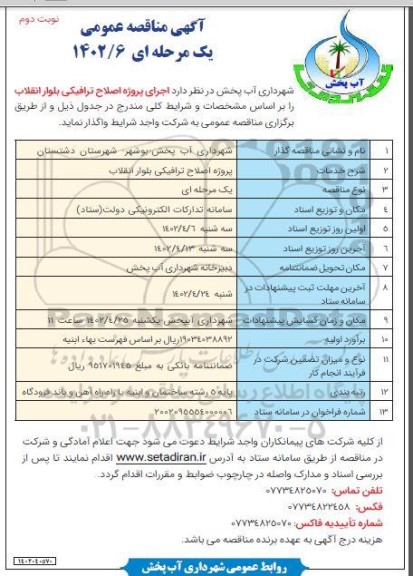 نوبت دوم
آگهی مناقصه عمومی
یک مرحله ای ۱۴۰۲/۶
آب پخش
شهرداری آب پخش در نظر دارد اجرای پروژه اصلاح ترافیکی بلوار انقلاب
را بر اساس مشخصات و شرایط کلی مندرج در جدول ذیل و از طریق
برگزاری مناقصه عمومی به شرکت واجد شرایط واگذار نماید.
۱ نام و نشانی مناقصه گذار شهرداری آب پخش بوشهر، شهرستان دشتستان
۲ شرح خدمات پروژه اصلاح ترافیکی بلوار انقلاب
۳ نوع مناقصه یک مرحله ای
۴ مکان و توزیع اسناد سامانه تدارکات الکترونیکی دولت(ستاد)
۵ اولین روز توزیع اسناد سه شنبه ۱۴۰۲/۴/۶
۶ آخرین روز توزیع اسناد سه شنبه ۱۴۰۲/۴/۱۳
۷ مکان تحویل ضمانتنامه دبیرخانه شهرداری آب پخش
۸ آخرین مهلت ثبت پیشنهادات در سامانه ستاد شنبه ۱۴۰۲/۴/۲۴
۹ مکان و زمان گشایش پیشنهادات شهرداری آبپخش یکشنبه ۱۴۰۲/۴/۲۵ ساعت ۱۱
۱۰ برآورد اولیه ۱۹۰۳۴۰۳۸۸۹۲ریال بر اساس فهرست بهاء ابنیه
۱۱ نوع و میزان تضمین شرکت در فرآیند انجام کار ضمانتنامه بانکی به مبلغ ۹۵۱۷۰۱۹۴۵ ریال
۱۲ رتبه بندی پایه ۵ رشته ساختمان و ابنیه یا راه،راه آهن و باند فرودگاه
۱۳ شماره فراخوان در سامانه ستاد ۲۰۰۲۰۹۵۵۵۴۰۰۰۰۰۶
۰۲۱-۸۸۳۴۹۶۷۰-۵
از کلیه شرکت های پیمانکاران واجد شرایط دعوت می شود جهت اعلام آمادگی و شرکت
در مناقصه از طریق سامانه ستاد به آدرس www.setadiran.ir اقدام نمایند تا پس از
بررسی اسناد و مدارک واصله در چارچوب ضوابط و مقررات اقدام گردد.
تلفن تماس: ۰۷۷۳۴۸۲۵۰۷۰
فکس: ۰۷۷۳۴۸۲۲۴۵۸
شماره تأییدیه فاکس: ۰۷۷۳۴۸۲۵۰۷۰
هزینه درج آگهی به عهده برنده مناقصه می باشد.
۱۴۰۲۰۴۰۵۷۰
روابط عمومی شهرداری آب پخش